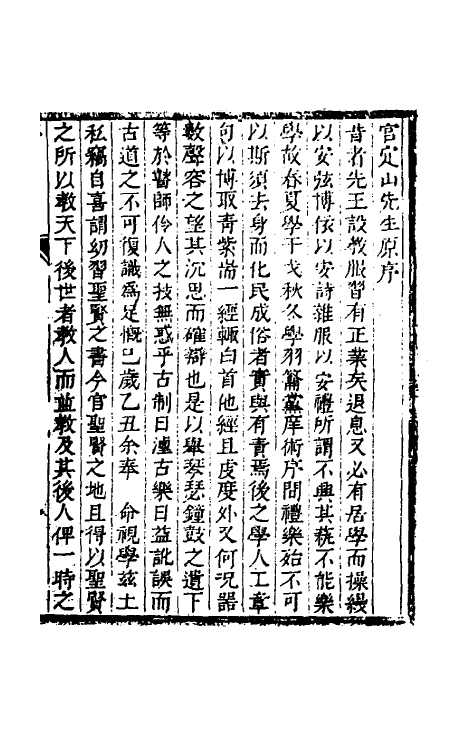 官定山先生原序
昔者先王設教服習有正業矣退息又必有居學而操縵
以安弦博依以安詩雜服以安禮所謂不興其蓺不能樂
學故春夏學干戈秋冬學羽籥黨庠術序間禮樂始不可
以斯須去身而化民成俗者實與有責焉後之學人工章
句以博取青紫耑一經輒白首他經且虔度外又何况器
數聲容之望其沉思而確辯也是以舉琴瑟鐘鼓之遺下
等於瞽師伶人之技無惑乎古制日湮古樂日益訛誤而
古道之不可復識為足慨已歲乙丑余奉　命視學兹土
私竊自喜謂幼習聖賢之書今官聖賢之地且得以聖賢
之所以教天下後世者教人而並教及其後人俾一時之